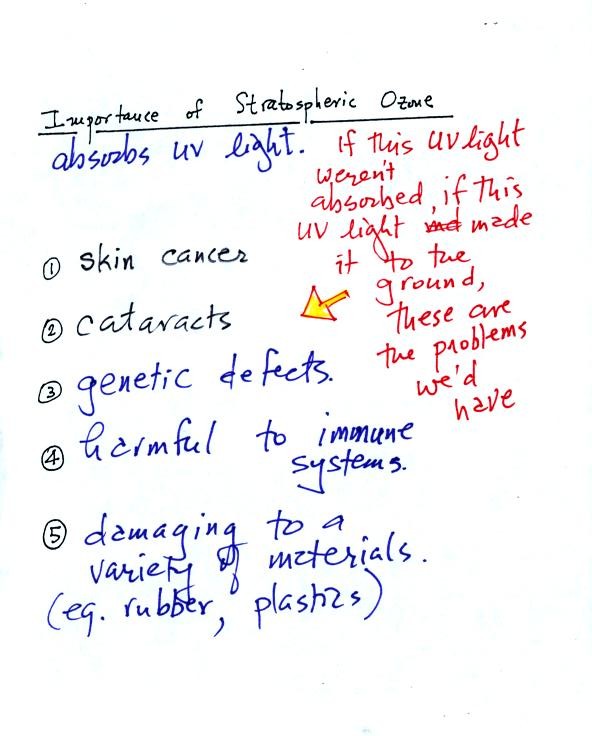 Importance of Stratospheric Ozone
absorbs UV light.
If this UV light
weren't
absorbed, if this
UV light made
it to the
ground,
these are
the problems
we'd
have
① skin cancer
② cataracts
③ genetic defects.
④ harmful to immune
systems.
⑤ damaging to a
variety of materials.
(eg. rubber, plastics)